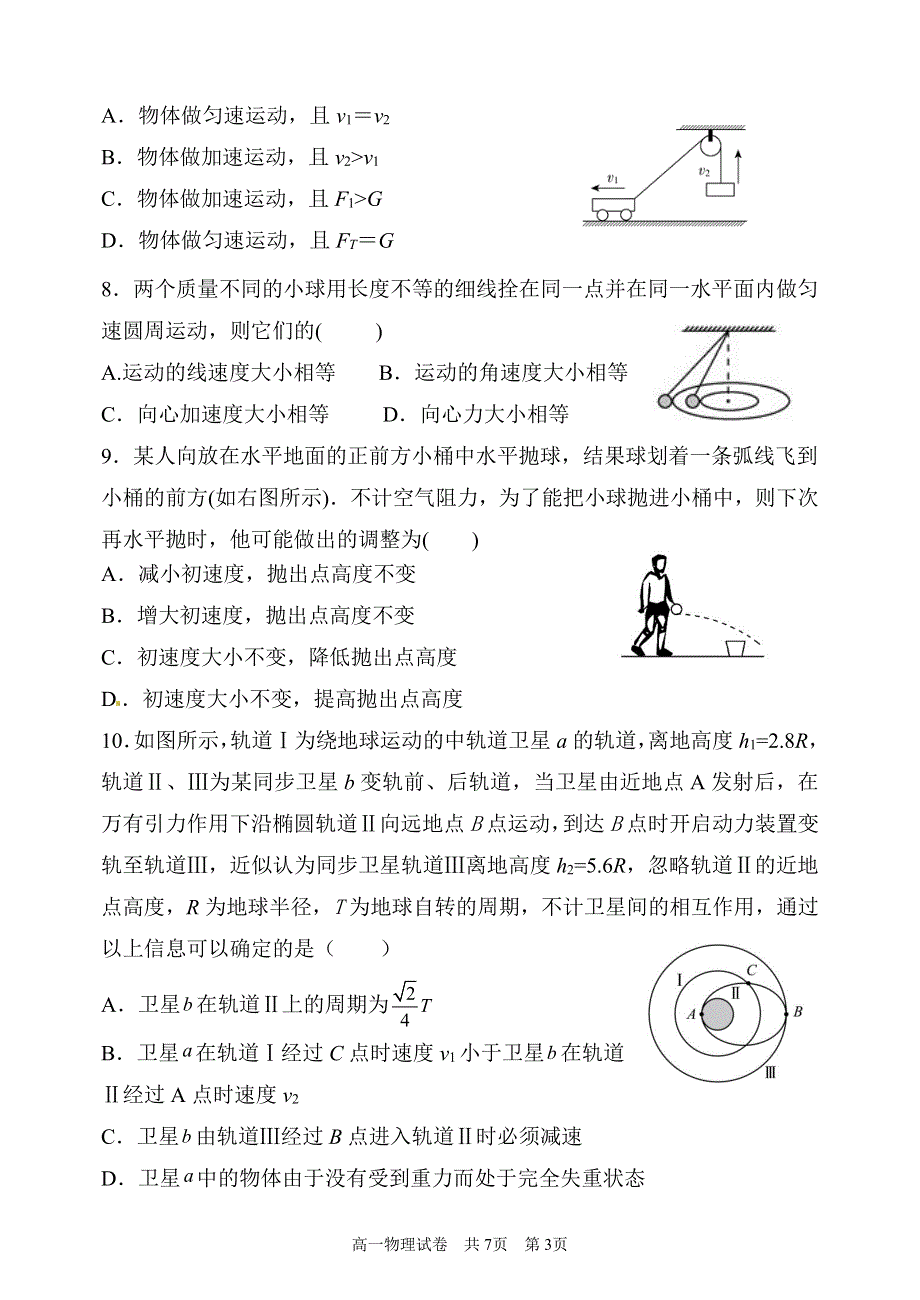 A．物体做匀速运动，且 v₁＝v₂
B．物体做加速运动，且 v₂>v₁
C．物体做加速运动，且 F₁>G
D．物体做匀速运动，且 F_T＝G
v₁
v₂
8．两个质量不同的小球用长度不等的细线拴在同一点并在同一水平面内做匀
速圆周运动，则它们的(　　)
A.运动的线速度大小相等　　B．运动的角速度大小相等
C．向心加速度大小相等　　D．向心力大小相等
9．某人向放在水平地面的正前方小桶中水平抛球，结果球划着一条弧线飞到
小桶的前方(如右图所示)．不计空气阻力，为了能把小球抛进小桶中，则下次
再水平抛时，他可能做出的调整为(　　)
A．减小初速度，抛出点高度不变
B．增大初速度，抛出点高度不变
C．初速度大小不变，降低抛出点高度
D．初速度大小不变，提高抛出点高度
10．如图所示，轨道Ⅰ为绕地球运动的中轨道卫星 a 的轨道，离地高度 h₁=2.8R，
轨道Ⅱ、Ⅲ为某同步卫星 b 变轨前、后轨道，当卫星由近地点 A 发射后，在
万有引力作用下沿椭圆轨道Ⅱ向远地点 B 点运动，到达 B 点时开启动力装置变
轨至轨道Ⅲ，近似认为同步卫星轨道Ⅲ离地高度 h₂=5.6R，忽略轨道Ⅱ的近地
点高度，R 为地球半径，T 为地球自转的周期，不计卫星间的相互作用，通过
以上信息可以确定的是（　　）
A．卫星 b 在轨道Ⅱ上的周期为 √2/4 T
B．卫星 a 在轨道Ⅰ经过 C 点时速度 v₁ 小于卫星 b 在轨道
Ⅱ经过 A 点时速度 v₂
C．卫星 b 由轨道Ⅲ经过 B 点进入轨道Ⅱ时必须减速
D．卫星 a 中的物体由于没有受到重力而处于完全失重状态
Ⅰ
C
Ⅱ
A
B
Ⅲ
高一物理试卷　共 7页　第 3页